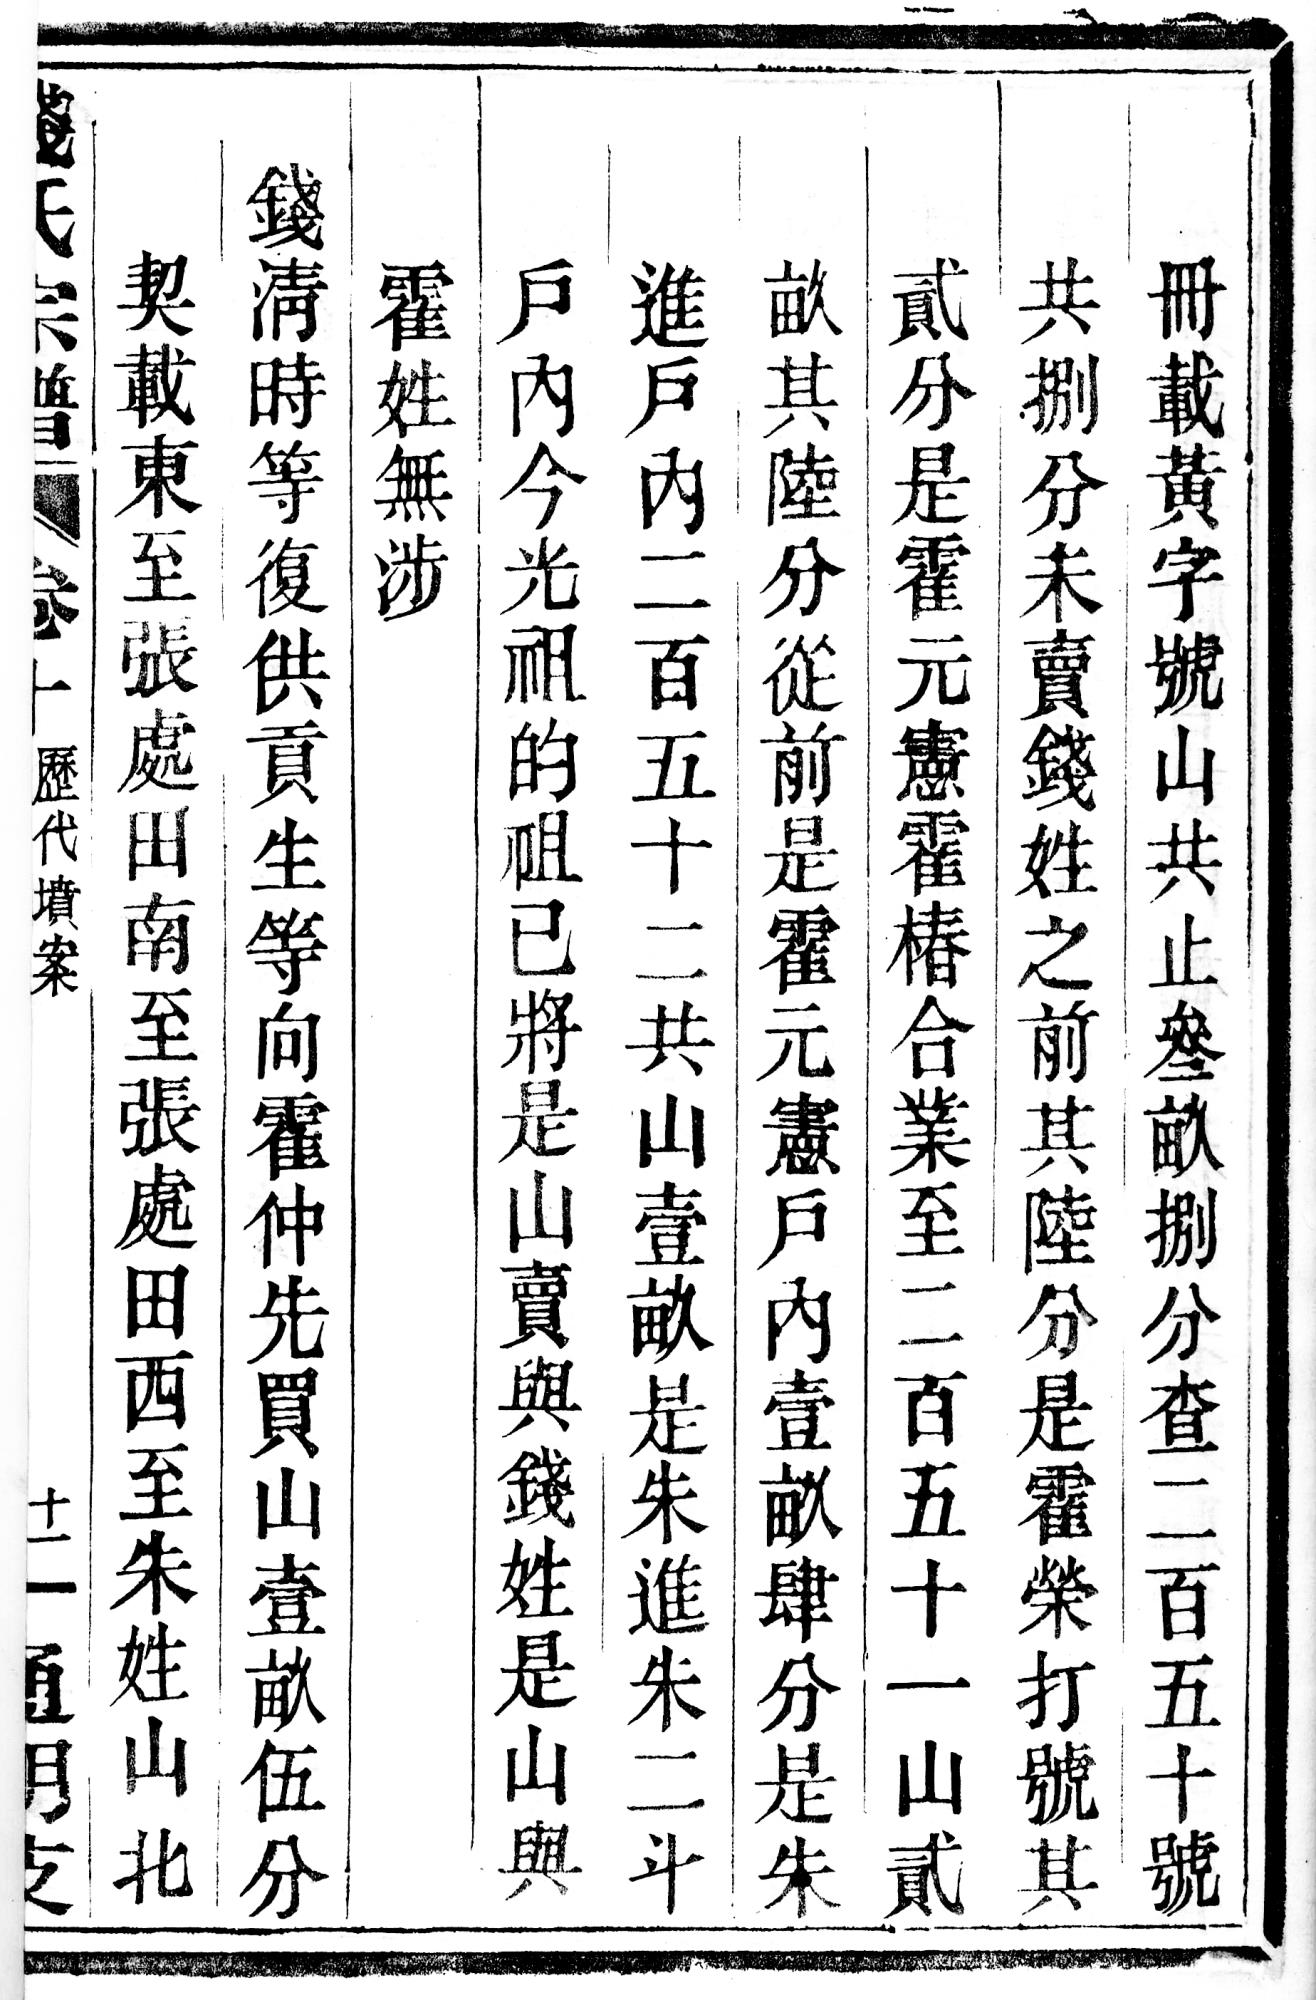 冊載黃字號山共止叄畝捌分查二百五十號
共捌分未賣錢姓之前其陸分是霍榮打號其
貳分是霍元憲霍椿合業至二百五十一山貳
畝其陸分從前是霍元憲戶內壹畝肆分是朱
進戶內二百五十二共山壹畝是朱進朱二斗
戶內今光祖的祖已將是山賣與錢姓是山與
霍姓無涉
錢清時等復供貢生等向霍仲先買山壹畝伍分
契載東至張處田南至張處田西至朱姓山北
錢氏宗譜
卷十
歷代墳案
十一
通明支